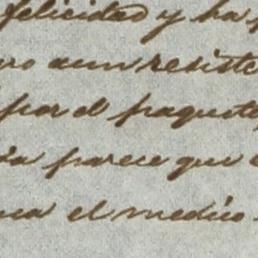 felicidad y ha
aun resiste
por el paquete
parece que
el medico